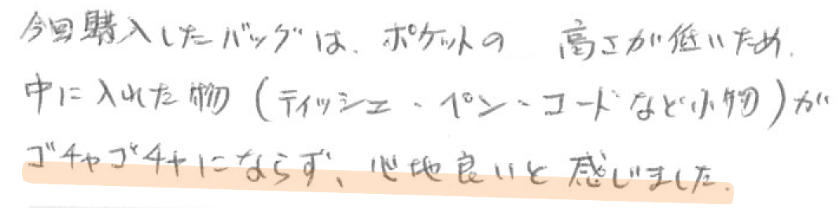 今回購入したバッグは、ポケットの 高さが低いため、
中に入れた物(ティッシュ・ペン・コードなど小物)が
ゴチャゴチャにならず、心地良いと感じました。